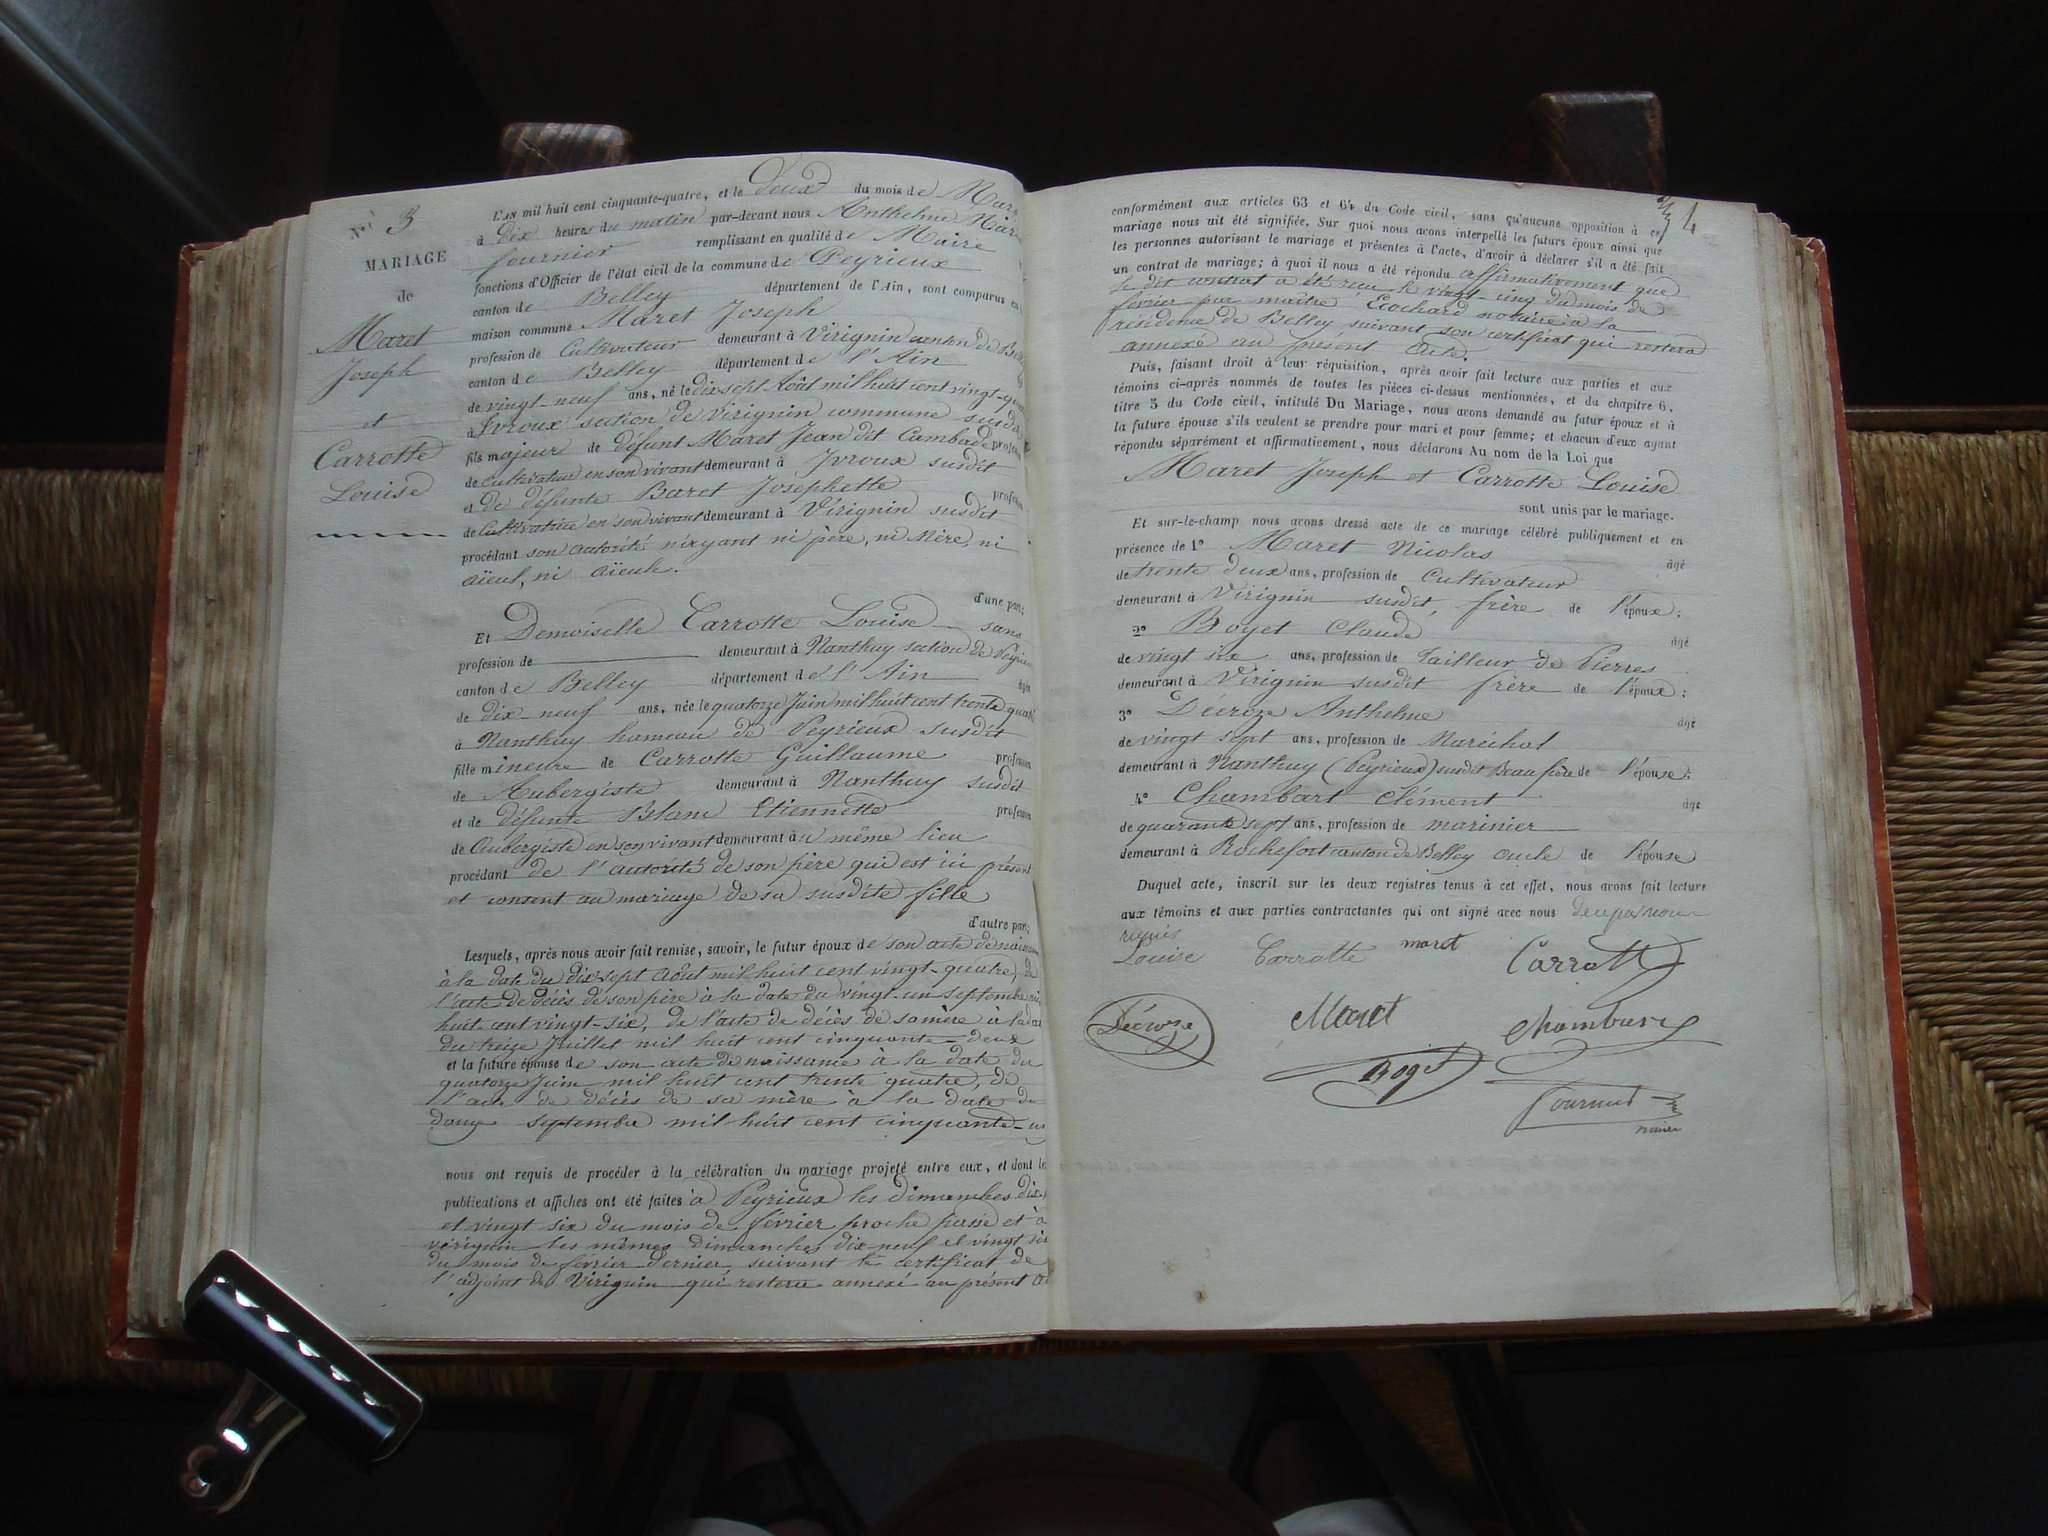 N° 3
MARIAGE
de
Maret
Joseph
et
Carrotte
Louise
L'AN mil huit cent cinquante-quatre, et le deux du mois de Mars
à dix heures du matin par-devant nous Anthelme
fournier remplissant en qualité de Maire
fonctions d'Officier de l'état civil de la commune de Peyrieux
canton de Belley département de l'Ain, sont comparus en
maison commune Maret Joseph
profession de Cultivateur demeurant à Virignin canton de
canton de Belley département de l'Ain
de vingt-neuf ans, né le dix sept Août mil huit cent vingt-quatre
à Ivroux section de Virignin commune susdite
fils majeur de défunt Maret Jean dit Cambade profession
de Cultivateur en son vivant demeurant à Ivroux susdit
et de défunte Baret Josephette profession
de Cultivatrice en son vivant demeurant à Virignin susdit
procédant son autorité n'ayant ni père, ni Mère, ni
aïeul, ni aïeule.
d'une part;
Et Demoiselle Carrotte Louise sans
profession de demeurant à Nanthuy section de Peyrieux
canton de Belley département de l'Ain âgée
de dix-neuf ans, née le quatorze Juin mil huit cent trente quatre
à Nanthuy hameau de Peyrieux susdit
fille mineure de Carrotte Guillaume profession
de Aubergiste demeurant à Nanthuy susdit
et de défunte Blanc Etiennette profession
de Aubergiste en son vivant demeurant au même lieu
procédant de l'autorité de son père qui est ici présent
et consent au mariage de sa susdite fille
d'autre part;
Lesquels, après nous avoir fait remise, savoir, le futur époux de son acte de naissance
à la date du dix sept Août mil huit cent vingt-quatre, de
l'acte de décès de son père à la date du vingt-un septembre mil
huit cent vingt-six, de l'acte de décès de sa mère à la date
du treize Juillet mil huit cent cinquante-deux
et la future épouse de son acte de naissance à la date du
quatorze Juin mil huit cent trente quatre, de
l'acte de décès de sa mère à la date du
septembre mil huit cent cinquante-un
nous ont requis de procéder à la célébration du mariage projeté entre eux, et dont les
publications et affiches ont été faites à Peyrieux les dimanches
et vingt six du mois de février proche passé et à
virignin les mêmes Dimanches dix-neuf et vingt six
du mois de février dernier suivant le certificat de
l'adjoint de Virignin qui restera annexé au présent
4
conformément aux articles 63 et 64 du Code civil, sans qu'aucune opposition à ce
mariage nous ait été signifiée. Sur quoi nous avons interpellé les futurs époux ainsi que
les personnes autorisant le mariage et présentes à l'acte, d'avoir à déclarer s'il a été fait
un contrat de mariage; à quoi il nous a été répondu affirmativement que
le dit contrat a été reçu le vingt-cinq du mois de
février par maître Ecochard notaire à la
résidence de Belley suivant son certificat qui restera
annexé au présent Acte.
Puis, faisant droit à leur réquisition, après avoir fait lecture aux parties et aux
témoins ci-après nommés de toutes les pièces ci-dessus mentionnées, et du chapitre 6,
titre 5 du Code civil, intitulé Du Mariage, nous avons demandé au futur époux et à
la future épouse s'ils veulent se prendre pour mari et pour femme; et chacun d'eux ayant
répondu séparément et affirmativement, nous déclarons Au nom de la Loi que
Maret Joseph et Carrotte Louise
sont unis par le mariage.
Et sur-le-champ nous avons dressé acte de ce mariage célébré publiquement et en
présence de 1° Maret Nicolas âgé
de trente deux ans, profession de Cultivateur
demeurant à Virignin susdit, frère de l'époux;
2° Boget Claude âgé
de vingt six ans, profession de Tailleur de Pierres
demeurant à Virignin susdit frère de l'époux;
3° Décroze Anthelme âgé
de vingt sept ans, profession de Maréchal
demeurant à Nanthuy (Peyrieux) susdit Beau frère de l'épouse;
4° Chambart Clément âgé
de quarante sept ans, profession de marinier
demeurant à Rochefort canton de Belley oncle de l'épouse
Duquel acte, inscrit sur les deux registres tenus à cet effet, nous avons fait lecture
aux témoins et aux parties contractantes qui ont signé avec nous de ce par nous
requis
Louise Carrotte maret Carrotte
Décroze Maret Chambart
Boget
fournier
maire